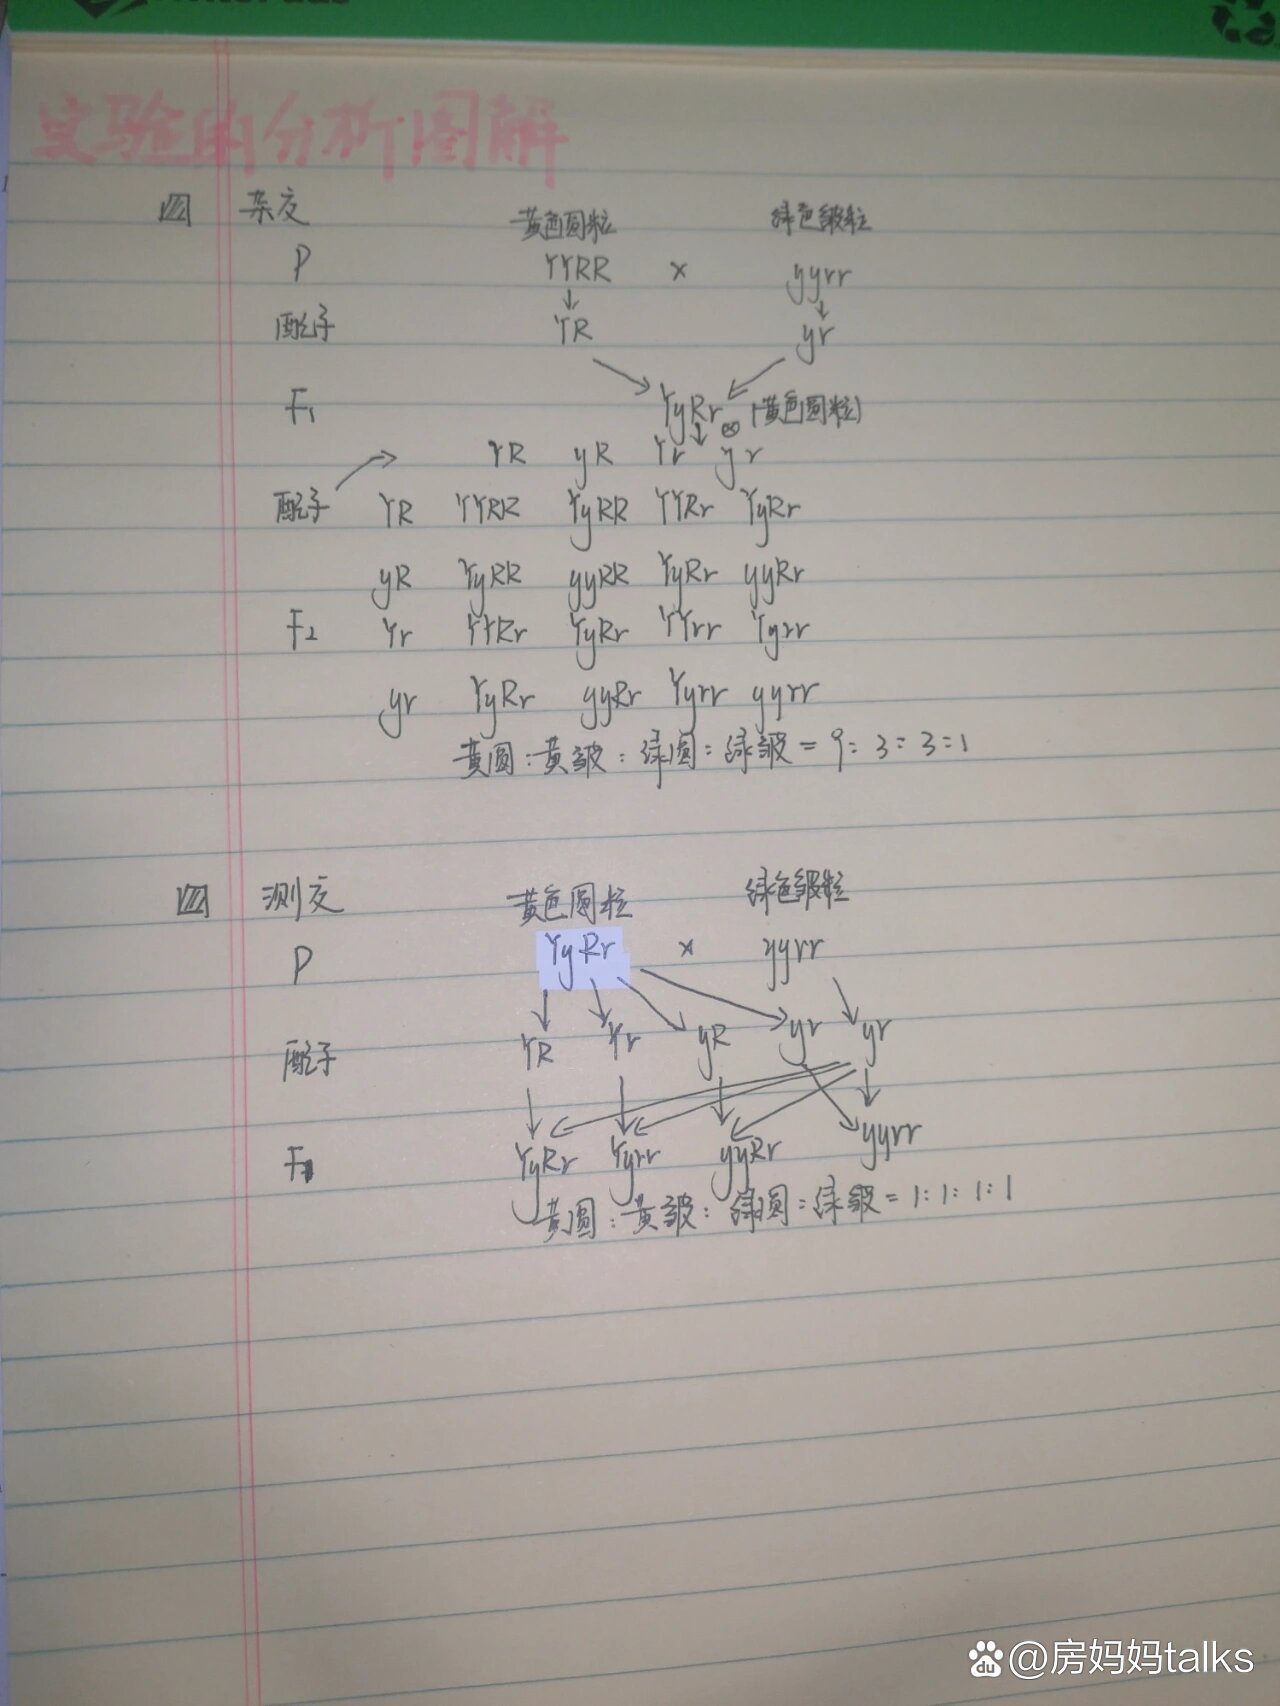 实验的分析图解
杂交 黄色圆粒 绿色皱粒
P YYRR × yyrr
配子 YR yr
F₁ YyRr ⊗ (黄色圆粒)
YR yR Yr yr
配子 YR YYRR YyRR YYRr YyRr
yR YyRR yyRR YyRr yyRr
F₂ Yr YYRr YyRr YYrr Yyrr
yr YyRr yyRr Yyrr yyrr
黄圆:黄皱:绿圆:绿皱=9:3:3:1
测交 黄色圆粒 绿色皱粒
P YyRr × yyrr
配子 YR Yr yR yr yr
F₁ YyRr Yyrr yyRr yyrr
黄圆:黄皱:绿圆:绿皱=1:1:1:1
du @房妈妈talks